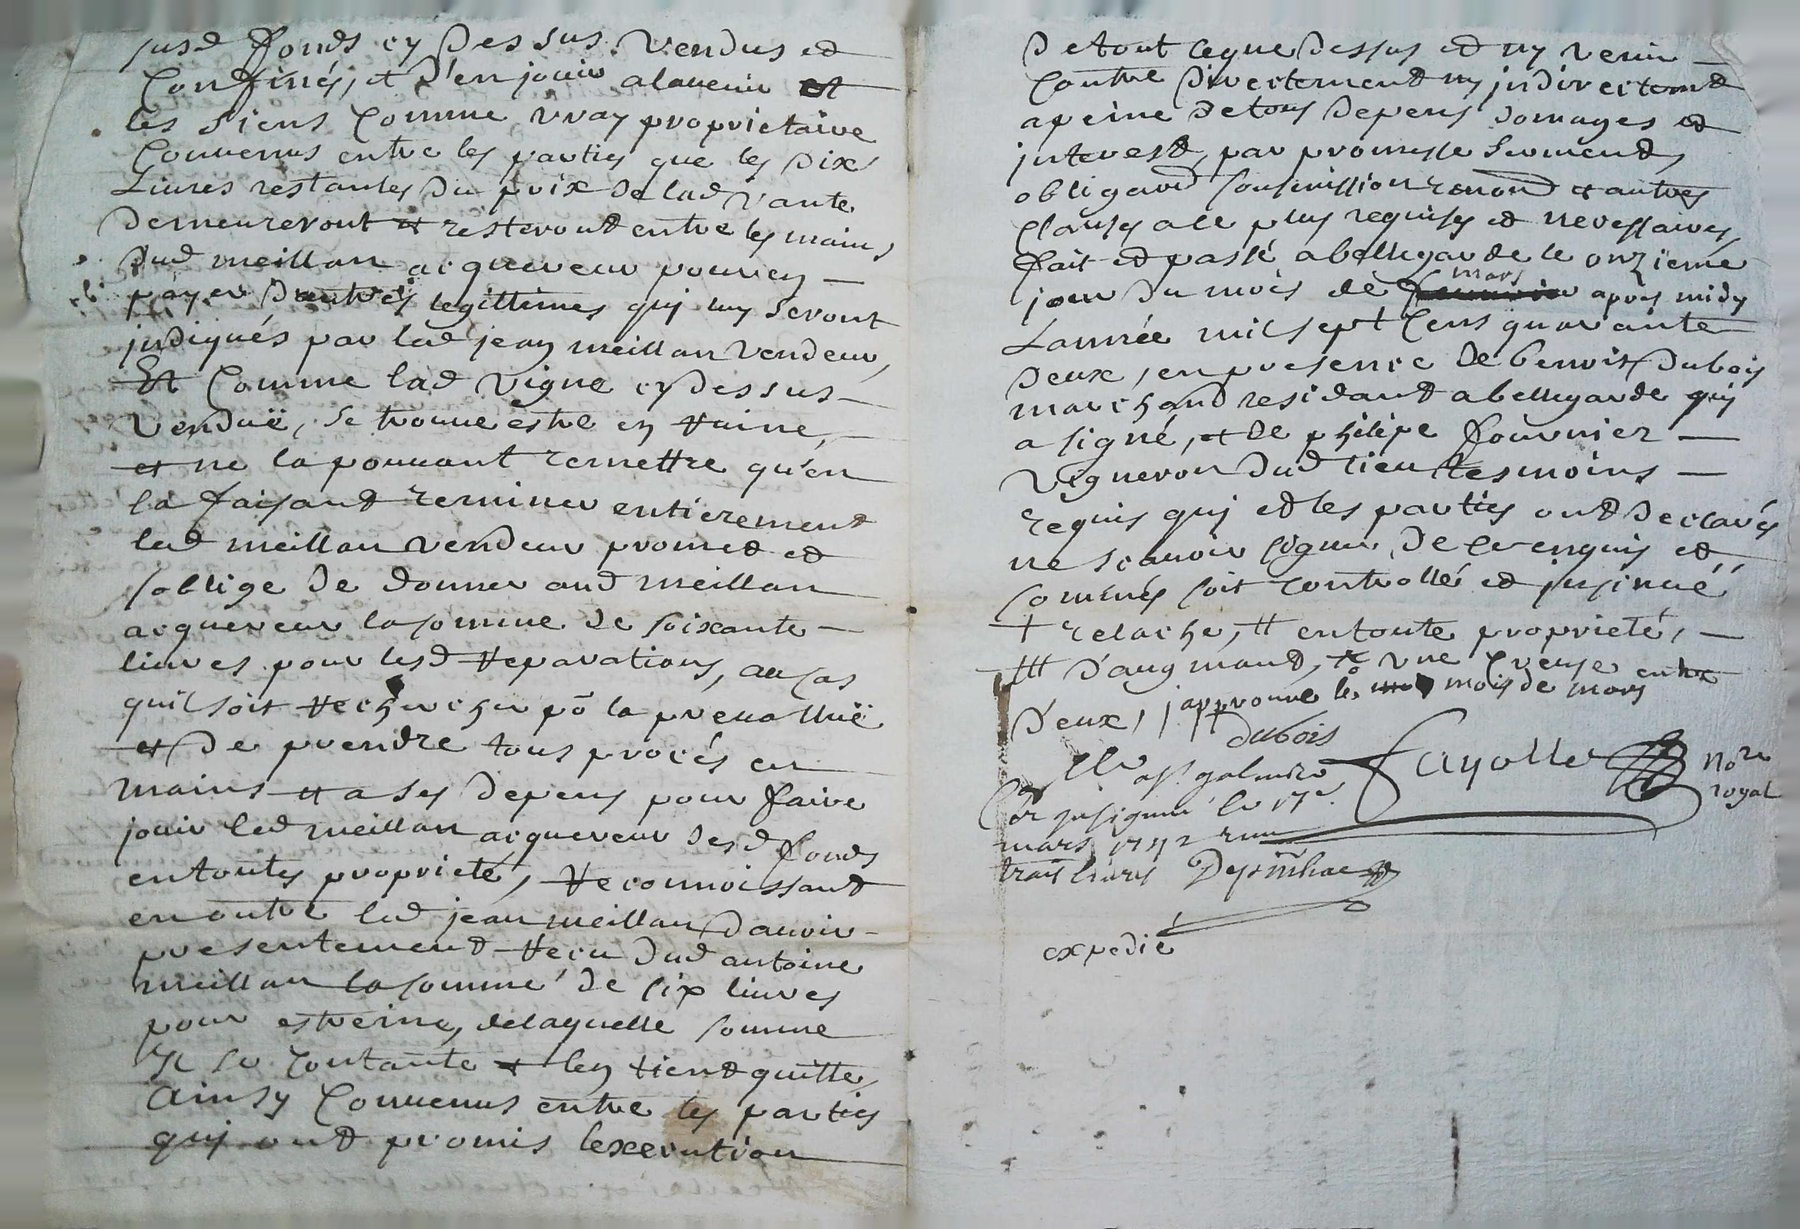 susd fonds cy dessus vendus et
Confinés, et d'en jouir alauenir et
les siens Comme vray proprietaire
Conuenus entre les parties que les dix
Liures restantes du prix de lad vante
demeureront et resteront entre les mains
dud meillan acquereur pour en
payer dautres legittimes qui luy seront
indiqués par led jean meillan vendeur,
Et Comme lad vigne cy dessus
Venduë, se trouue estre en Ruine,
et ne la pouuant remettre qu'en
la faisant reminer entierement
led meillan vendeur promet et
soblige de donner aud meillan
acquereur la somme de soixante
liures pour lesd Reparations, au cas
quil soit Rechercher po la preuallüe
et de prendre tous procés en
mains et a ses depens pour faire
jouir led meillan acquereur desd fonds
en toutes proprieté, Reconnoissant
en outre led jean meillan dauoir
presentement Recu dud antoine
meillan la somme de six liures
pour estreine, de laquelle somme
Il se Contante et len tient quitte,
Ainsy Conuenus entre les parties
qui ont promis lexecution
de tout ceque dessus et ny venir
Contre directement ny indirectemt
a peine de tous depens domages et
interest, par promesse serments
obligaōn soumission renonō et autres
Clauses a ce plus requises et necessaires,
fait et passé a bellegarde le onzieme
jour du mois de mars apres midy
Lannée mil sept Cens quarante
deux, en presence de benoist dubois
marchand residant a bellegarde qui
a signé, et de philipe fournier
vigneron dud lieu tesmoins
requis qui et les parties ont declarés
ne scauoir signer, de ce enquis et
sommés soit controllé et insinué
+ relache, ++ en toute proprieté,
+++ d'augmand, une Creuse entre
deux, japprouue le mois de mars
dubois
Clle a st galmier Fayolle Nore
royal
Et insignué le 17e
mars 1742 reçu
trois liures
expedié